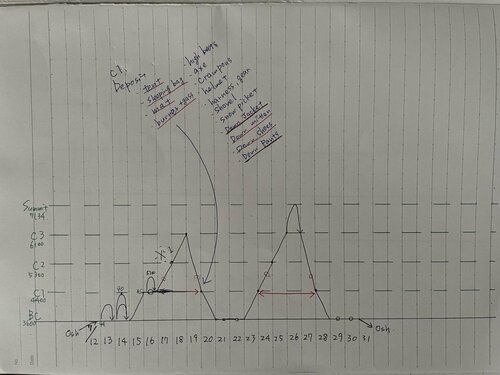 C1,
Deposit
· tent
· sleeping bag
· mat
· burner + gass
· high boots
· axe
· Crampons
· helmet
· harness, gear
· shovel
· snow picket
· Down Jacket
· Down mitten
· Down shoes
· Down Pants
Summit
7134
C3
6100
C2
5300
C1
4400
BC
3600
Osh
12 13 14 15 16 17 18 19 20 21 22 23 24 25 26 27 28 29 30 31
Osh